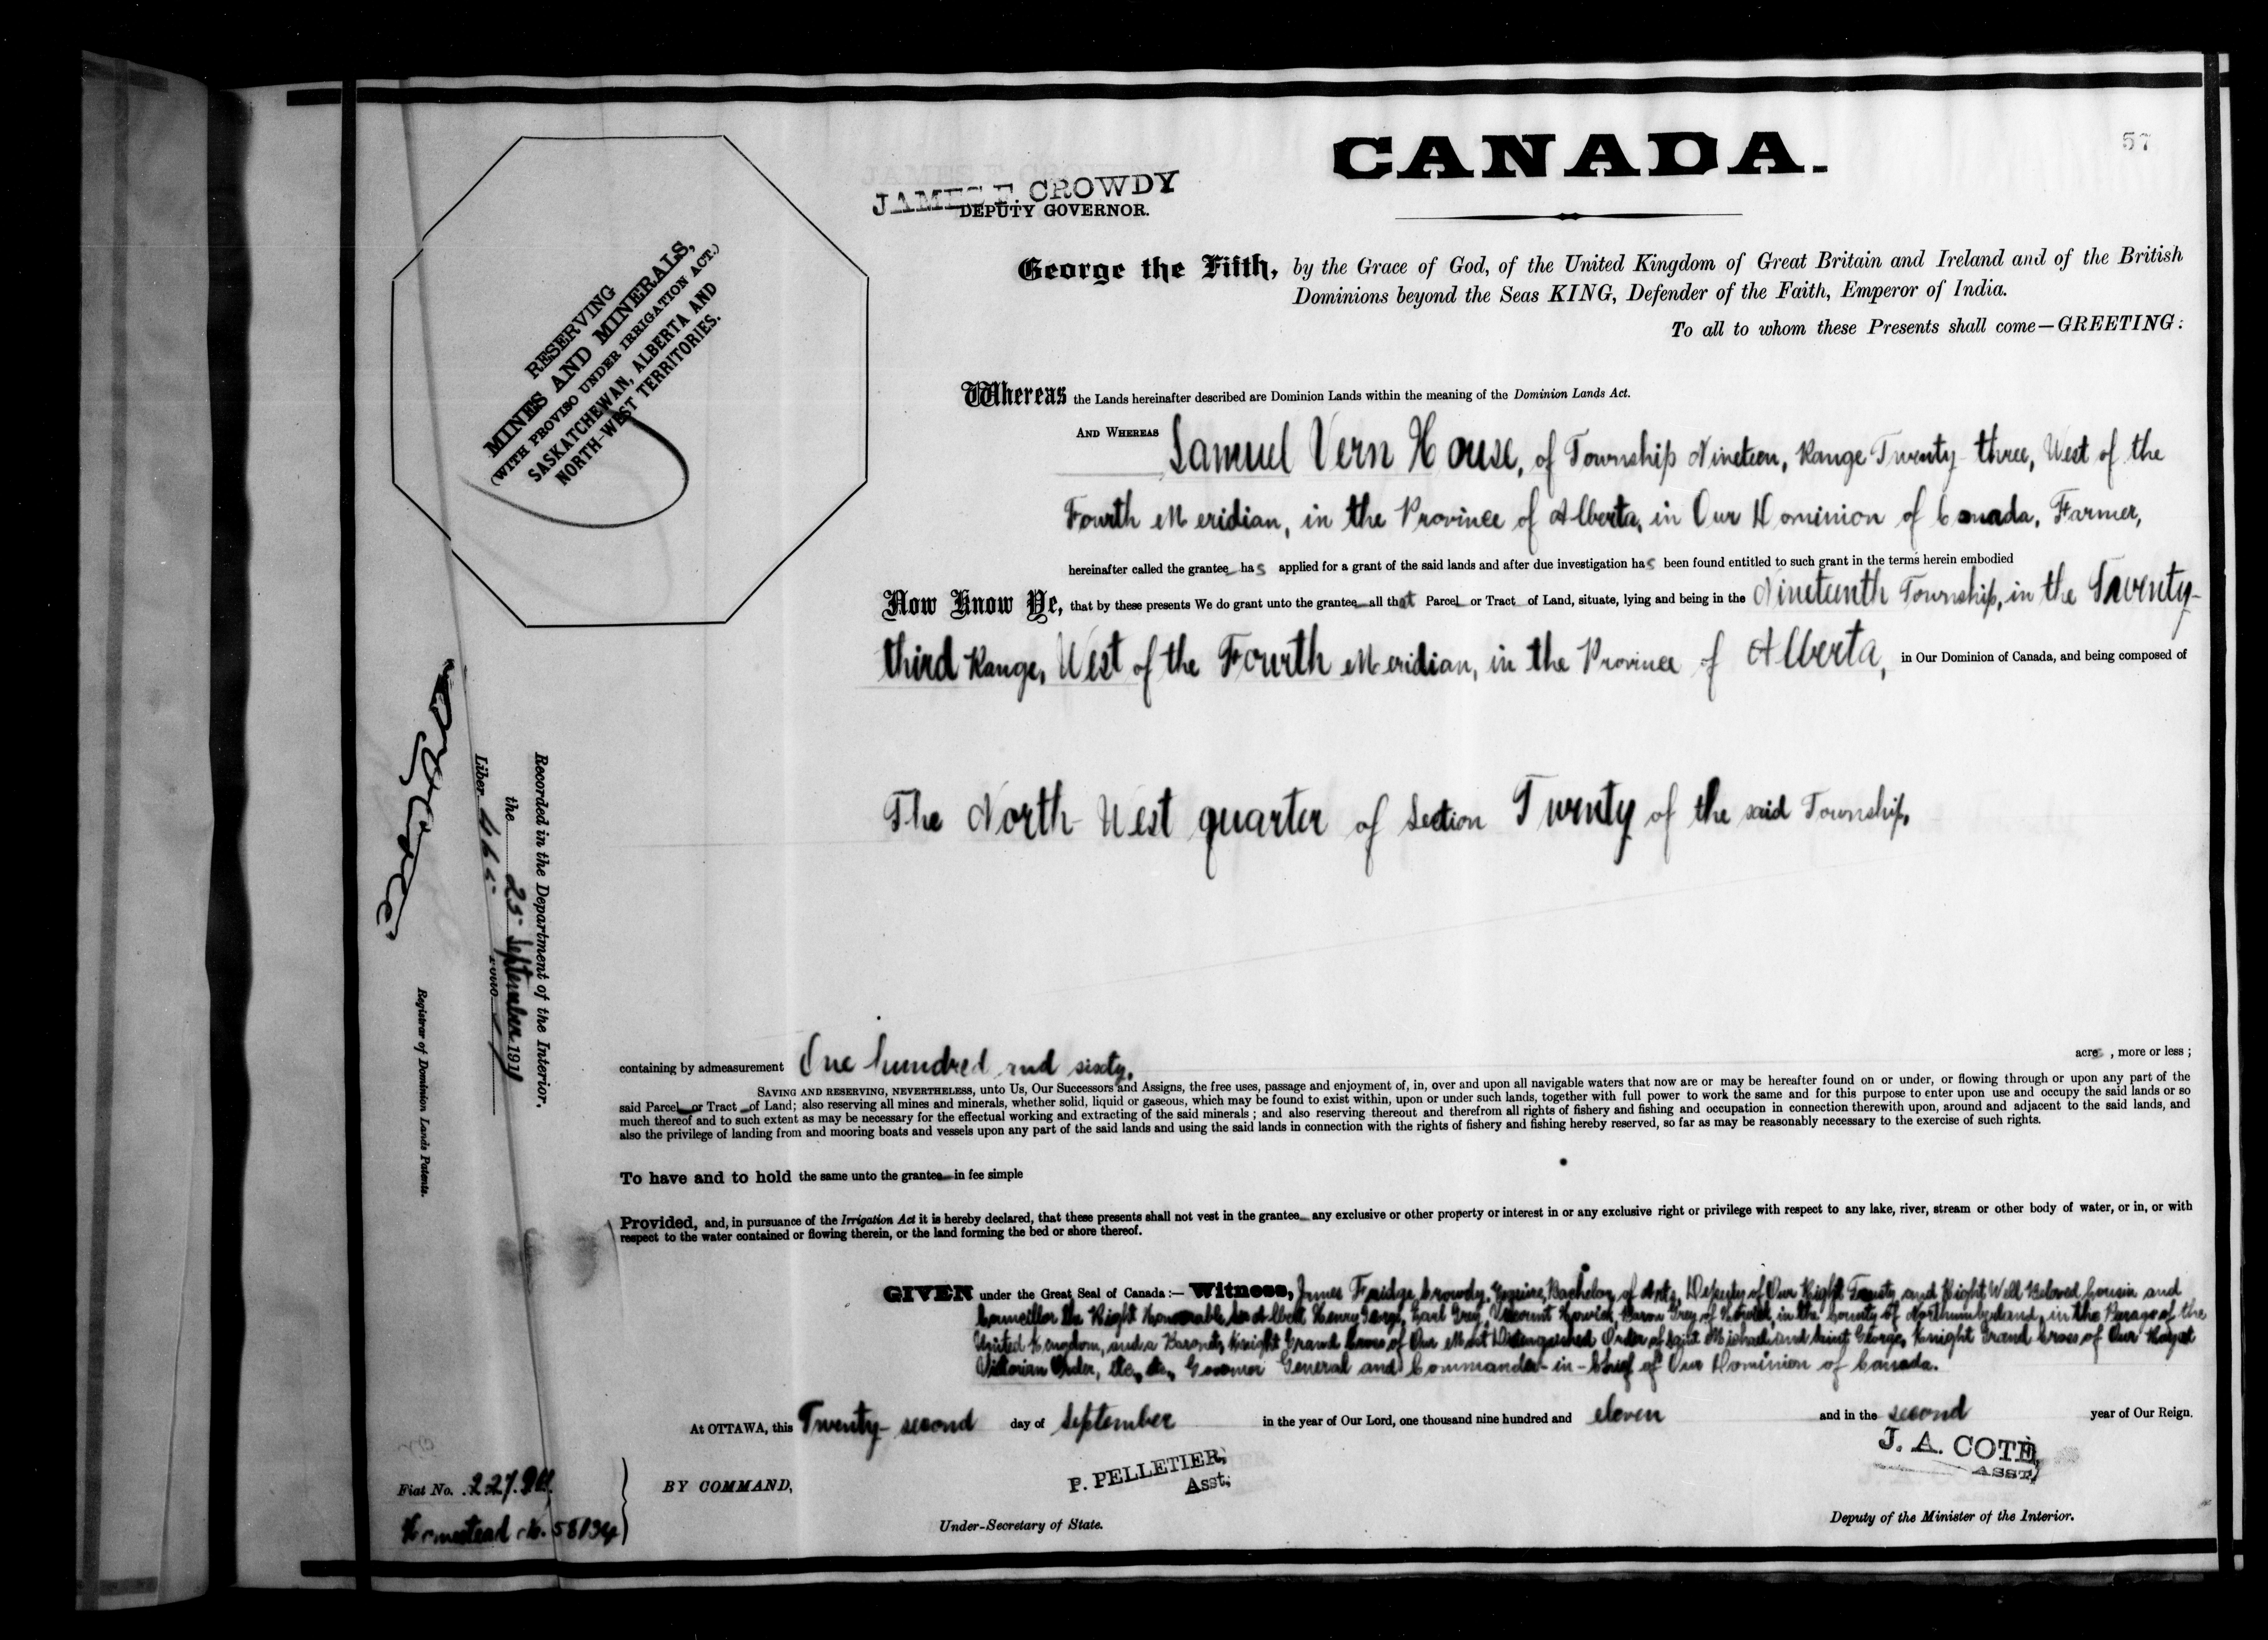 57
CANADA.
JAMES F. CROWDY
DEPUTY GOVERNOR.
George the Fifth, by the Grace of God, of the United Kingdom of Great Britain and Ireland and of the British
Dominions beyond the Seas KING, Defender of the Faith, Emperor of India.
To all to whom these Presents shall come—GREETING:
RESERVING
MINES AND MINERALS,
(WITH PROVISO UNDER IRRIGATION ACT.)
SASKATCHEWAN, ALBERTA AND
NORTH-WEST TERRITORIES.
Whereas the Lands hereinafter described are Dominion Lands within the meaning of the Dominion Lands Act.
AND WHEREAS Samuel Vern House, of Township Nineteen, Range Twenty-three, West of the
Fourth Meridian, in the Province of Alberta, in Our Dominion of Canada, Farmer,
hereinafter called the grantee has applied for a grant of the said lands and after due investigation has been found entitled to such grant in the terms herein embodied
Now Know Ye, that by these presents We do grant unto the grantee all that Parcel or Tract of Land, situate, lying and being in the Nineteenth Township, in the Twenty-
third Range, West of the Fourth Meridian, in the Province of Alberta, in Our Dominion of Canada, and being composed of
The North West quarter of Section Twenty of the said Township,
containing by admeasurement One hundred and sixty, acres, more or less;
SAVING AND RESERVING, NEVERTHELESS, unto Us, Our Successors and Assigns, the free uses, passage and enjoyment of, in, over and upon all navigable waters that now are or may be hereafter found on or under, or flowing through or upon any part of the
said Parcel or Tract of Land; also reserving all mines and minerals, whether solid, liquid or gaseous, which may be found to exist within, upon or under such lands, together with full power to work the same and for this purpose to enter upon use and occupy the said lands or so
much thereof and to such extent as may be necessary for the effectual working and extracting of the said minerals; and also reserving thereout and therefrom all rights of fishery and fishing and occupation in connection therewith upon, around and adjacent to the said lands, and
also the privilege of landing from and mooring boats and vessels upon any part of the said lands and using the said lands in connection with the rights of fishery and fishing hereby reserved, so far as may be reasonably necessary to the exercise of such rights.
To have and to hold the same unto the grantee in fee simple
Provided, and, in pursuance of the Irrigation Act it is hereby declared, that these presents shall not vest in the grantee any exclusive or other property or interest in or any exclusive right or privilege with respect to any lake, river, stream or other body of water, or in, or with
respect to the water contained or flowing therein, or the land forming the bed or shore thereof.
GIVEN under the Great Seal of Canada:— Witness, James Fridge Crowdy, Esquire, Bachelor of Arts, Deputy of Our Right Trusty and Right Well Beloved Cousin and
Councillor the Right Honourable Sir Albert Henry George, Earl Grey, Viscount Howick, Baron Grey of Howick, in the County of Northumberland, in the Peerage of the
United Kingdom, and a Baronet, Knight Grand Cross of Our Most Distinguished Order of Saint Michael and Saint George, Knight Grand Cross of Our Royal
Victorian Order, &c., &c., Governor General and Commander-in-Chief of Our Dominion of Canada.
At OTTAWA, this Twenty-second day of September in the year of Our Lord, one thousand nine hundred and eleven and in the second year of Our Reign.
BY COMMAND,
P. PELLETIER,
Asst.
Under-Secretary of State.
J. A. COTÉ,
ASST.
Deputy of the Minister of the Interior.
Recorded in the Department of the Interior,
the 25 September 1911
Liber 465 Folio 57
Registrar of Dominion Lands Patents.
Fiat No. 22794.
Homestead No. 58134